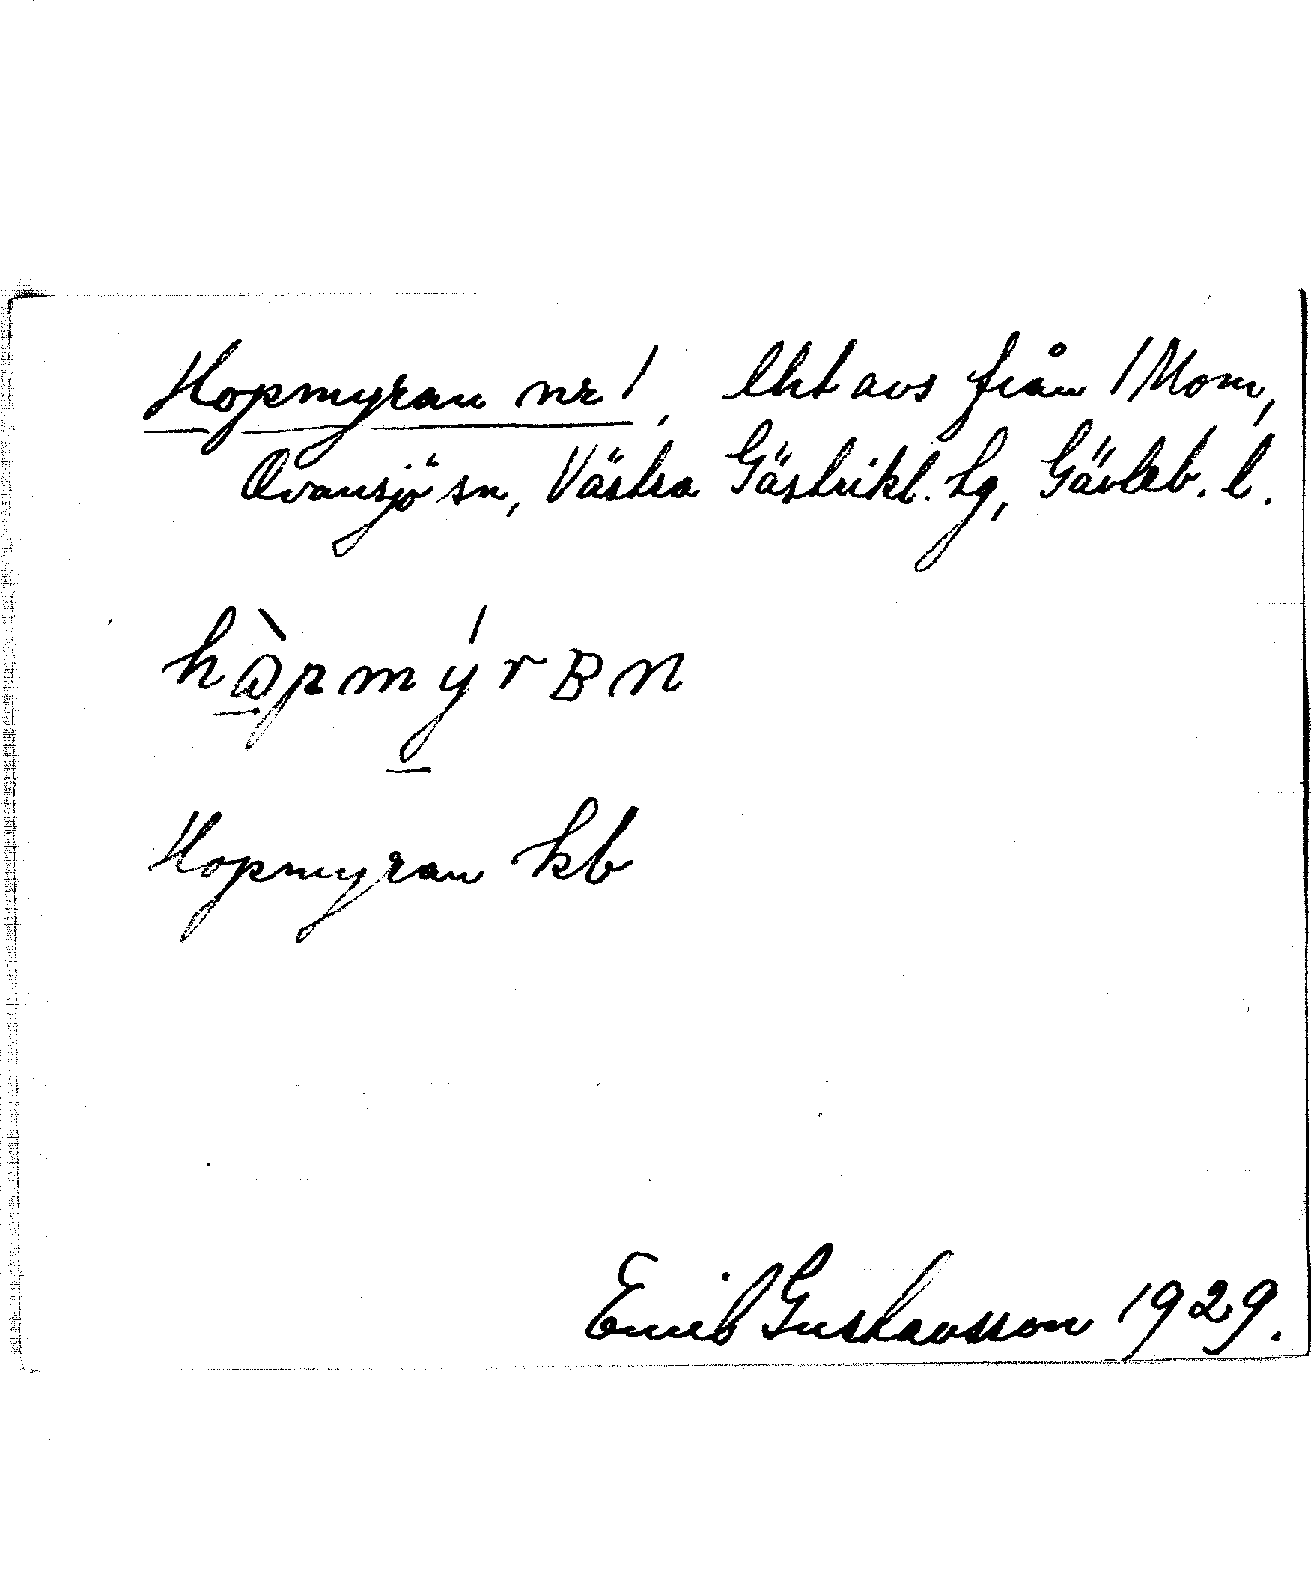 Hopmyran nr 1, lht avs från 1 Mom,
Ovansjö sn, Västra Gästrikl. tg, Gävleb. l.
Hopmyran kb
Emil Gustavsson 1929.